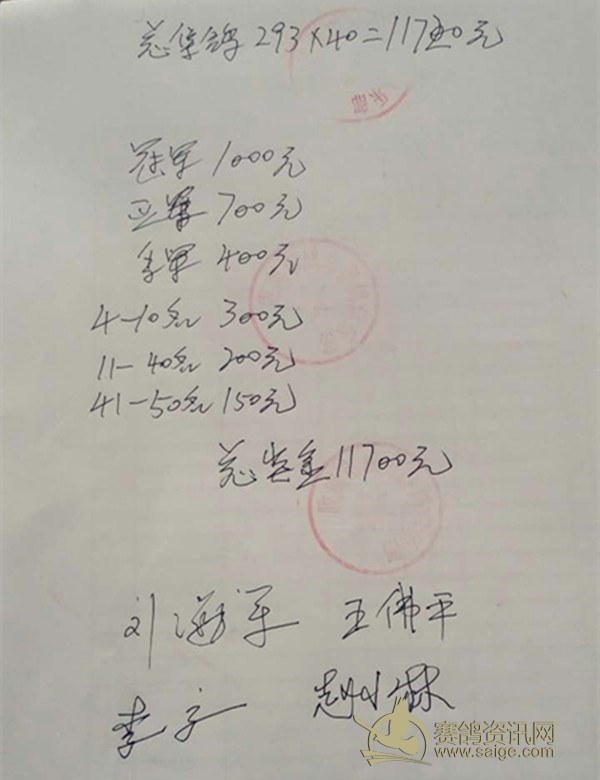 总集鸽 293×40=11720元
冠军 1000元
亚军 700元
季军 400元
4-10名 300元
11-40名 200元
41-50名 150元
总奖金 11700元
刘海军 王佛平
李
赛鸽资讯网
www.saige.com